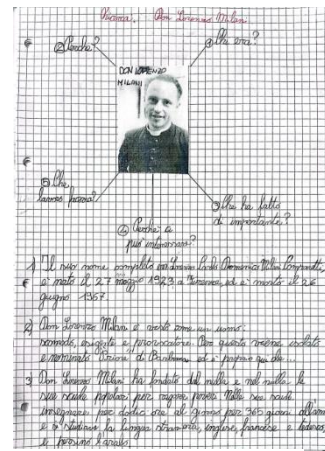 Ricerca, Don Lorenzo Milani
② Perchè?
① Chi era?
DON LORENZO
MILANI
⑤ Che
lavoro faceva?
③ Che ha fatto
di importante?
④ Perchè ci
può interessare?
1) Il suo nome completo era Lorenzo Carlo Domenico Milani Comparetti,
è nato il 27 maggio 1923 a Firenze, ed è morto il 26
giugno 1967.
2) Don Lorenzo Milani è visto come un uomo:
scomodo, esigente e provocatore. Per questo viene isolato
e nominato Priore di Barbiana ed è proprio qui che...
3 Don Lorenzo Milani ha fondato dal nulla e nel nulla le
sue scuole popolari per ragazzi poveri. Nelle sue scuole
insegnava per dodici ore al giorno per 365 giorni all'anno
e si studiava la lingua straniera, inglese, francese e tedesco,
e persino l'arabo.